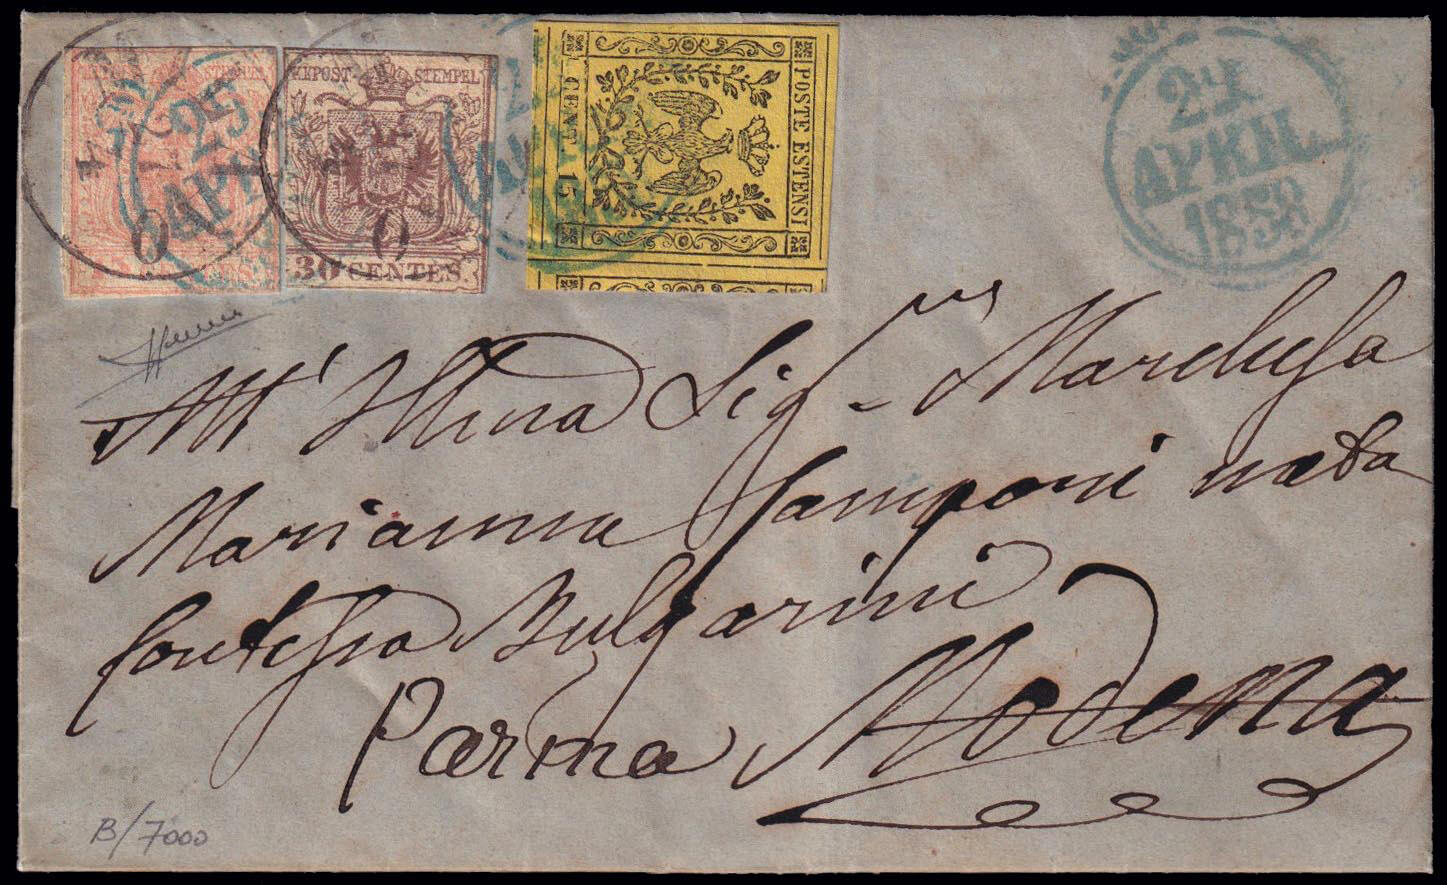 KKPOST-STEMPEL
30 CENTES.
POSTE ESTENSI
CENT. 15
25
APR
24
APRIL
1858
All' Ill.ma Sig.ra Marchesa
Marianna Camponi nata
Contessa Bulgarini
Parma Modena
B/7000